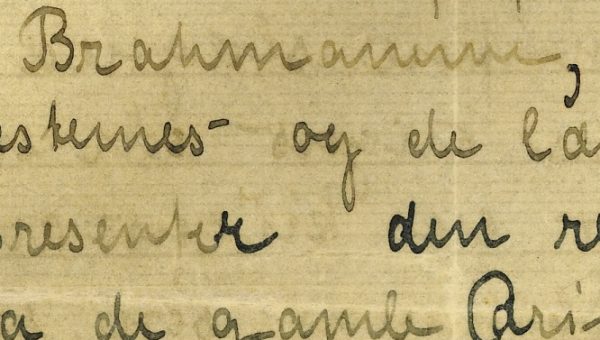 Brahmanini,
esternes og de la
presenter den re
a de gamle Ari-